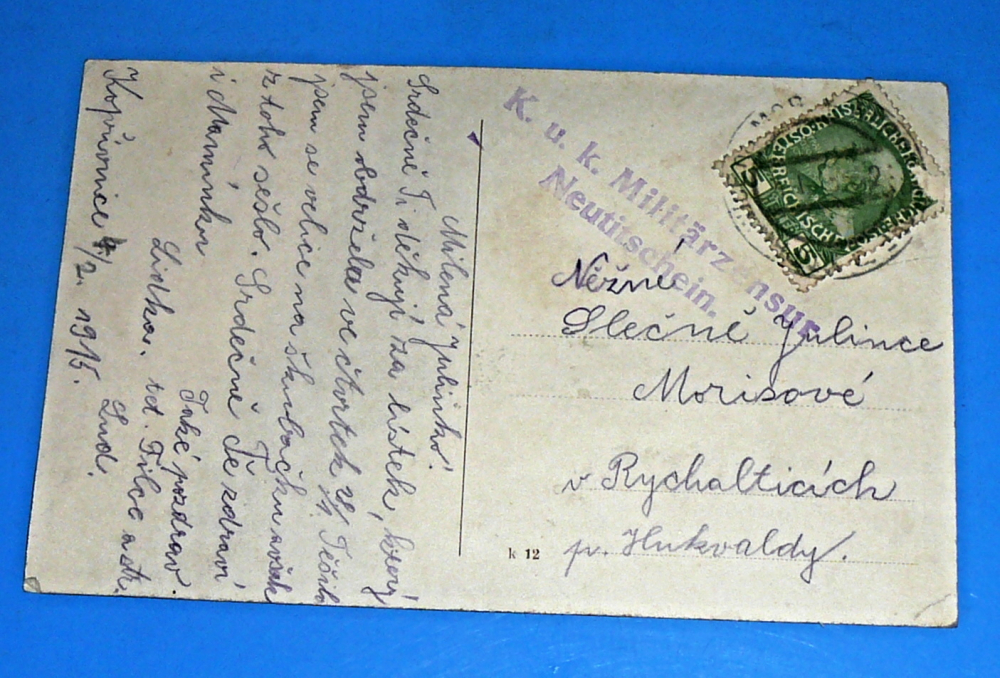 Milená Julinko!
Srdečně Ti děkuji za lístek, který
jsem obdržela ve čtvrtek Těšila
jsem se velice na škubačku avšak
z toho sešlo. Srdečně Tě zdraví
i Maminku
Také pozdrav
Lidka. tet. Filce a str.
Kopřivnice 4/2. 1915. Lud.
K. u. k. Militärzensur
Neutitschein.
Něžné
Slečně Julince
Morisové
v Rychalticích
p. Hukvaldy.
k 12
5
5